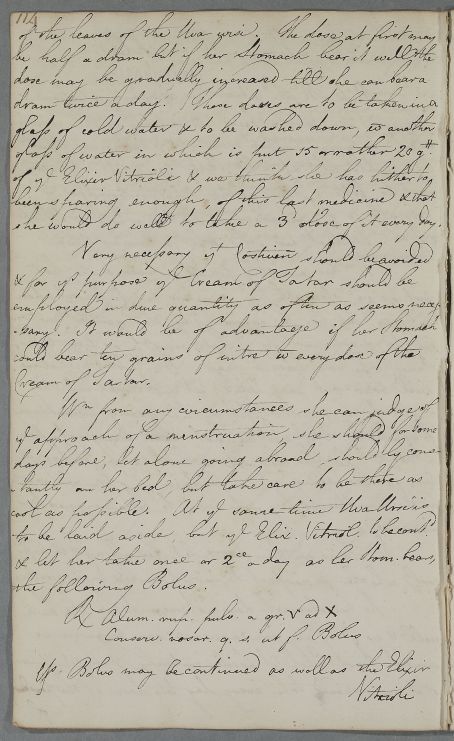 114
of the leaves of the Uva ursi. The dose at first may
be half a dram but if her Stomach bear it well the
dose may be gradually increased till she can bear a
dram twice a day. These doses are to be taken in a
glass of cold water & to be washed down, w another
glass of water in which is put 15 or rather 20 gtt
of ye Elixir Vitrioli & we think she has hitherto
been sparing enough of this last medicine & that
she would do well to take a 3d dose of it every day.
Very necessary yt Costiveness should be avoided
& for ys purpose ye Cream of Tartar should be
employed in due quantity as often as seems neces
-sary. It would be of advantage if her Stomach
could bear ten grains of nitre w every dose of the
Cream of Tartar.
Wn from any circumstances she can judge of
ye approach of a menstruation, she should for some
days before, let alone going abroad, should ly cons
-tantly on her bed, but take care to be there as
cool as possible. At ye same time Uva Ursi is
to be laid aside, but ye Elix. Vitriol. to be contd
& let her take once or 2ce a day as her Stom. bears,
the following Bolus.
℞ Alum. rup. pulv. a gr. V ad X
Conserv. rosar. q. s. ut f. Bolus
Ys Bolus may be continued as well as the Elixir
Vitrioli